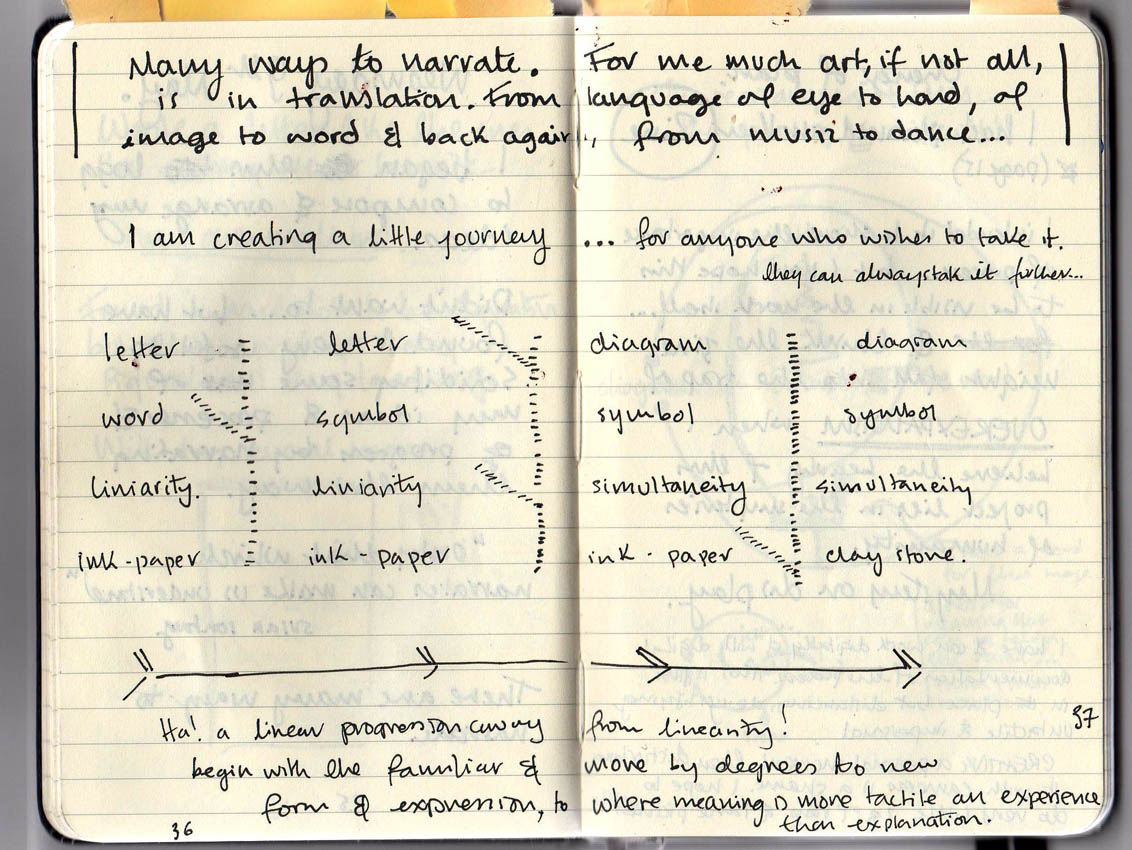 Many ways to narrate. For me much art, if not all,
is in translation. From language of eye to hand, of
image to word & back again, from music to dance...
I am creating a little journey ... for anyone who wishes to take it.
they can always tak it further...
letter letter diagram diagram
word symbol symbol symbol
liniarity. liniarity simultaneity simultaneity
ink-paper ink-paper ink-paper clay stone.
Ha! a linear progression away from linearity!
37
begin with the familiar & move by degrees to new
form & expression, to where meaning is more tactile an experience
than explanation.
36